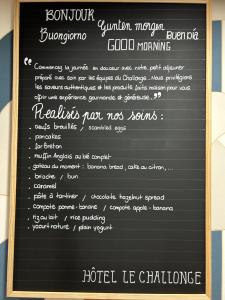 BONJOUR
Gunten morgen
Buongiorno
Buen día
GOOD MORNING
" Commencez la journée en douceur avec notre petit déjeuner
préparé avec soin par les équipes du Challonge. Nous privilégions
les saveurs authentiques et les produits faits maison pour vous
offrir une expérience gourmande et généreuse. "
Réalisés par nos soins :
. oeufs brouillés / scambled eggs
. pancakes
. far breton
. muffin Anglais au blé complet
. gateau du moment : banana bread, cake au citron, ...
. brioche / bun
. caramel
. pâte à tartiner / chocolate hazelnut spread
. compote pomme-banane / compote apple-banana
. riz au lait / rice pudding
. yaourt nature / plain yogurt
HÔTEL LE CHALLONGE